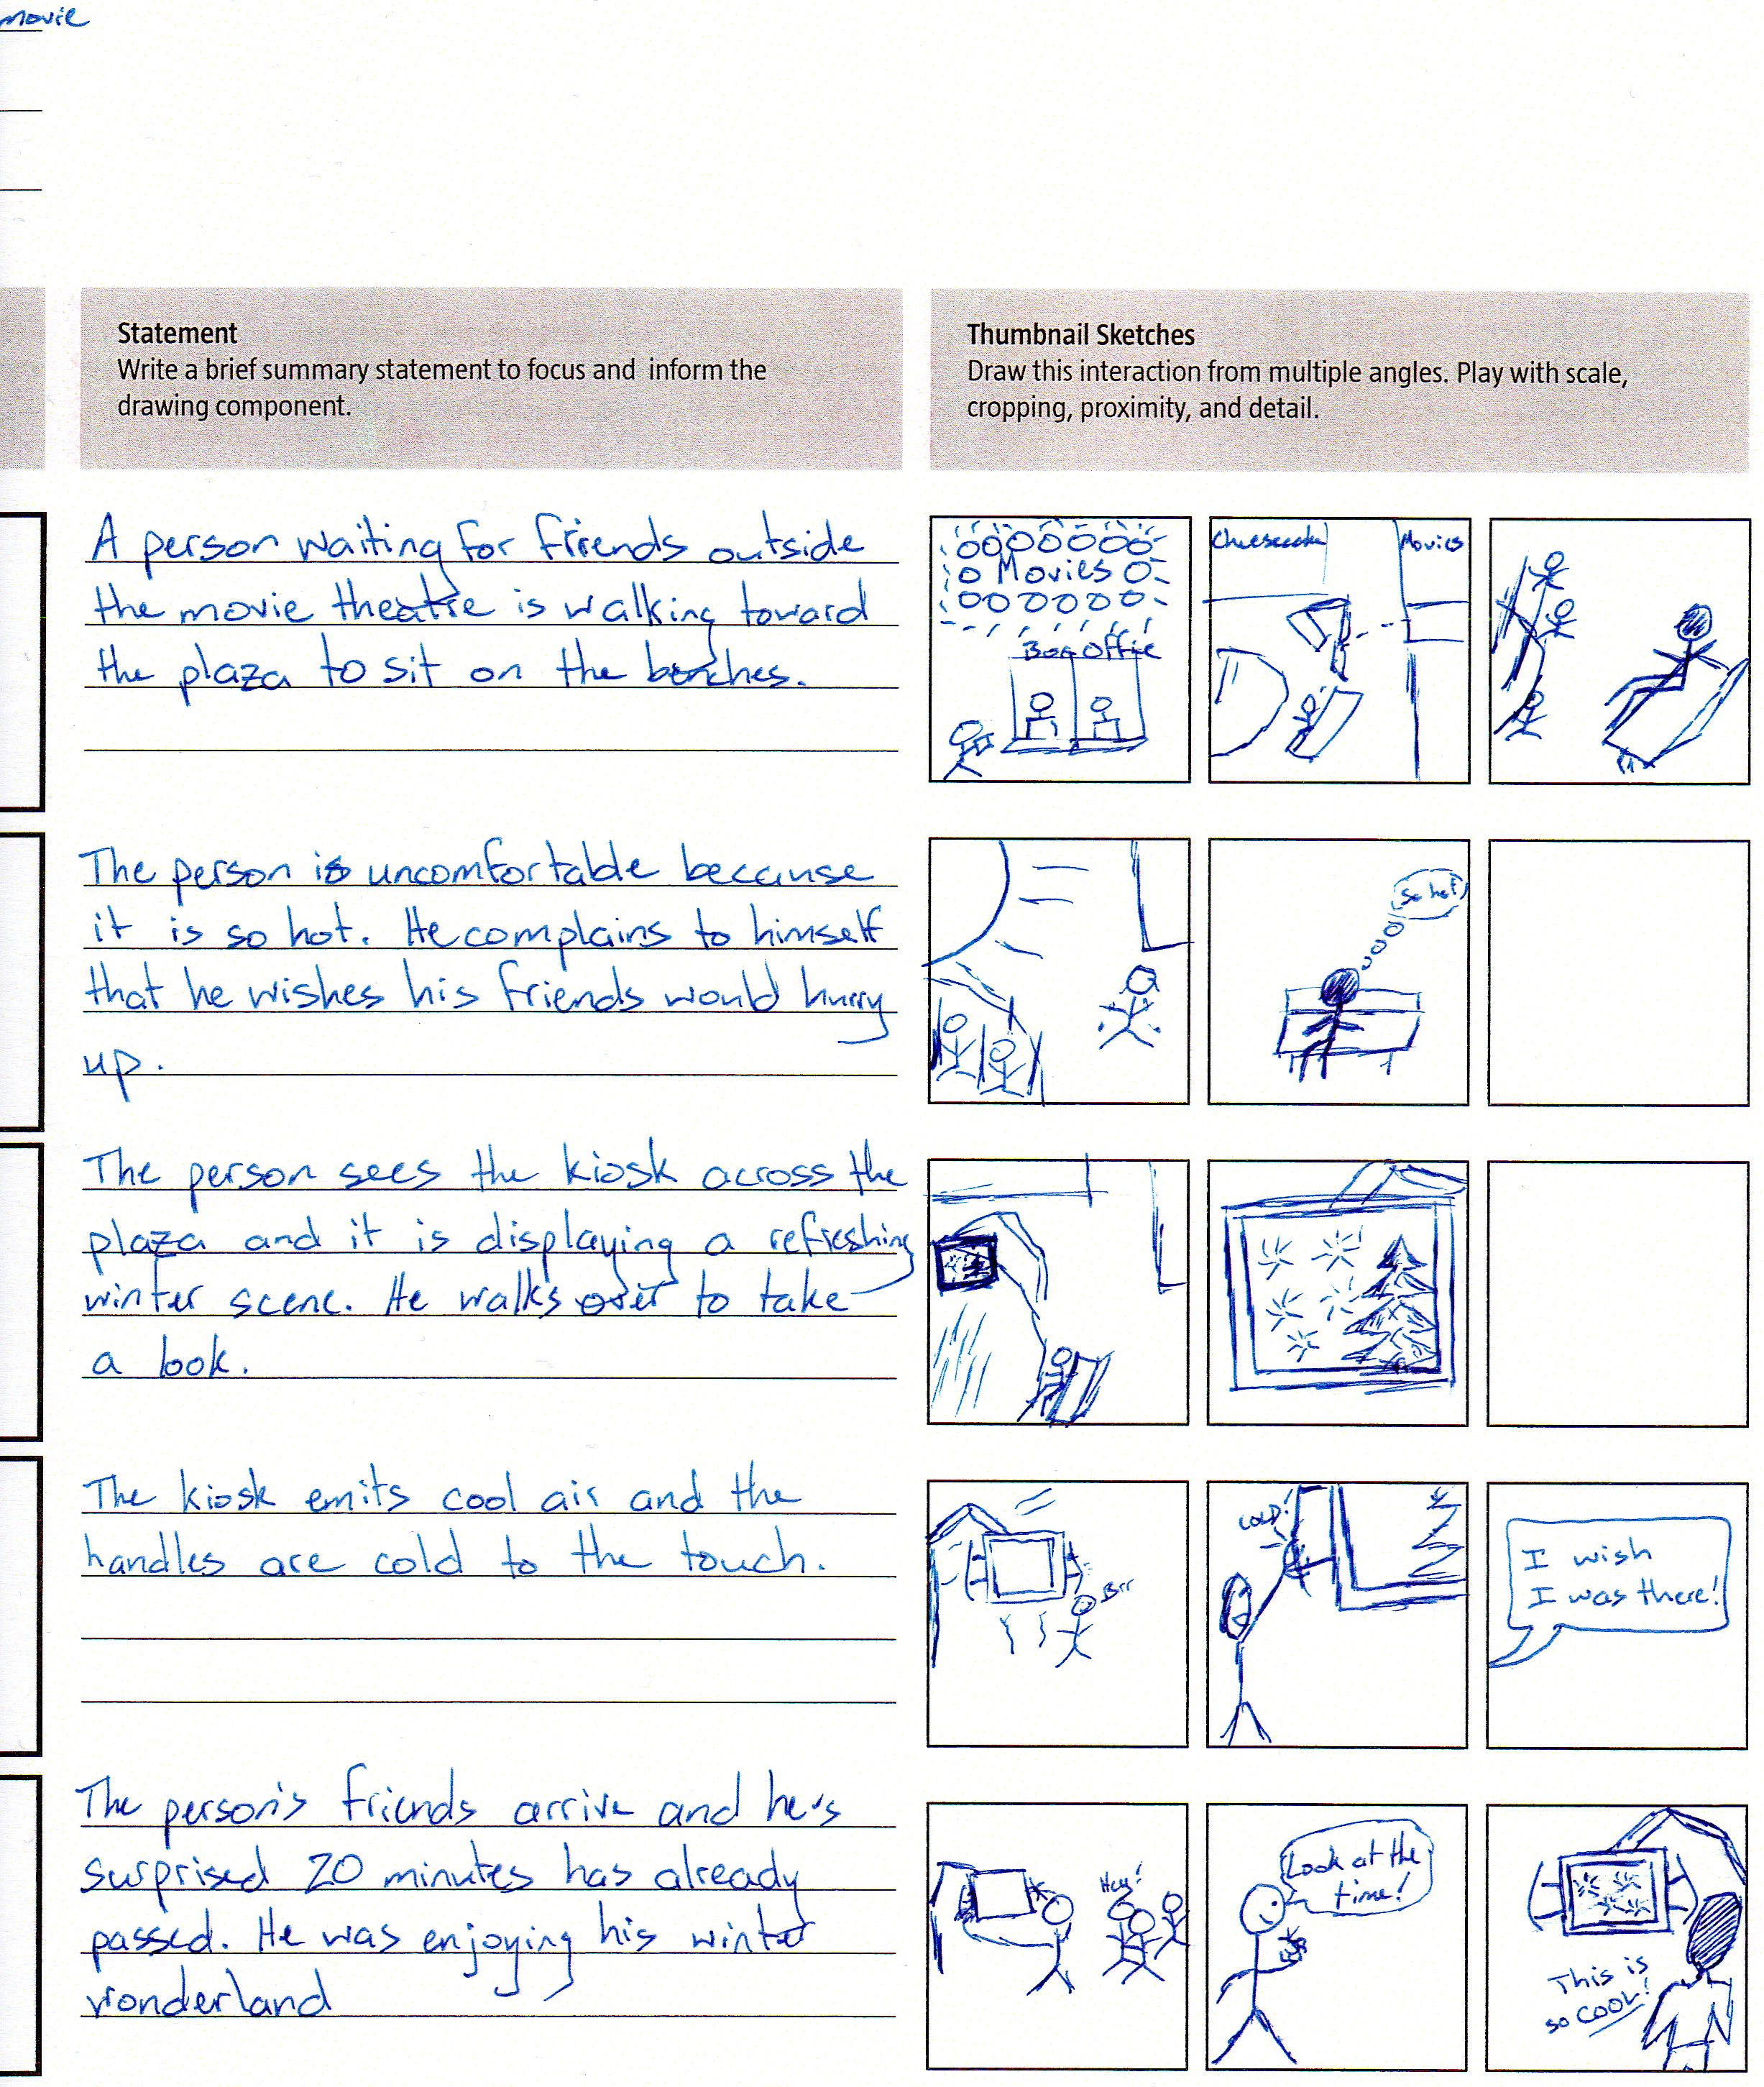 movie
Statement
Write a brief summary statement to focus and inform the
drawing component.
Thumbnail Sketches
Draw this interaction from multiple angles. Play with scale,
cropping, proximity, and detail.
A person waiting for friends outside
the movie theatre is walking toward
the plaza to sit on the benches.
Movies
Box Office
Cheesecake
Movies
The person is uncomfortable because
it is so hot. He complains to himself
that he wishes his friends would hurry
up.
So hot
The person sees the kiosk across the
plaza and it is displaying a refreshing
winter scene. He walks over to take
a look.
The kiosk emits cool air and the
handles are cold to the touch.
Brr
COLD!
I wish
I was there!
The person's friends arrive and he's
surprised 20 minutes has already
passed. He was enjoying his winter
wonderland
Hey!
Look at the
time!
This is
so COOL!